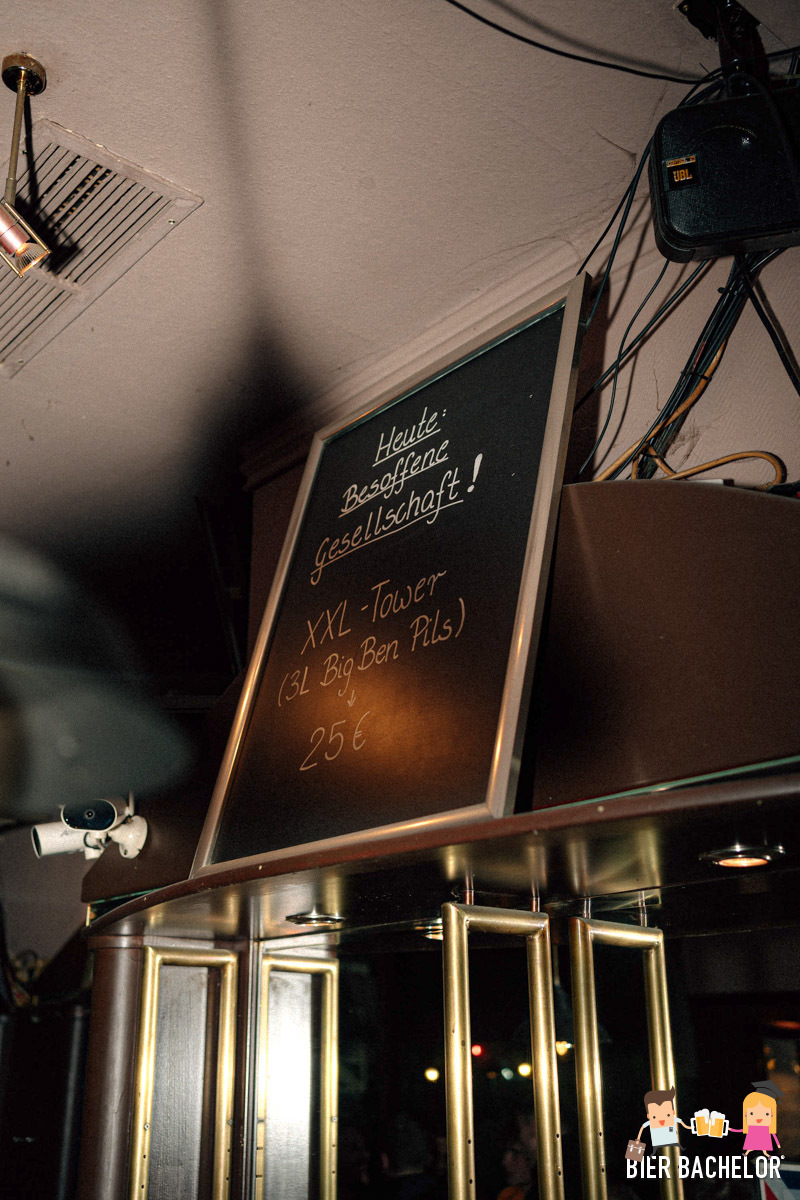 UBL
Heute:
Besoffene
Gesellschaft!
XXL-Tower
(3L Big Ben Pils)
↓
25€
BIER BACHELOR